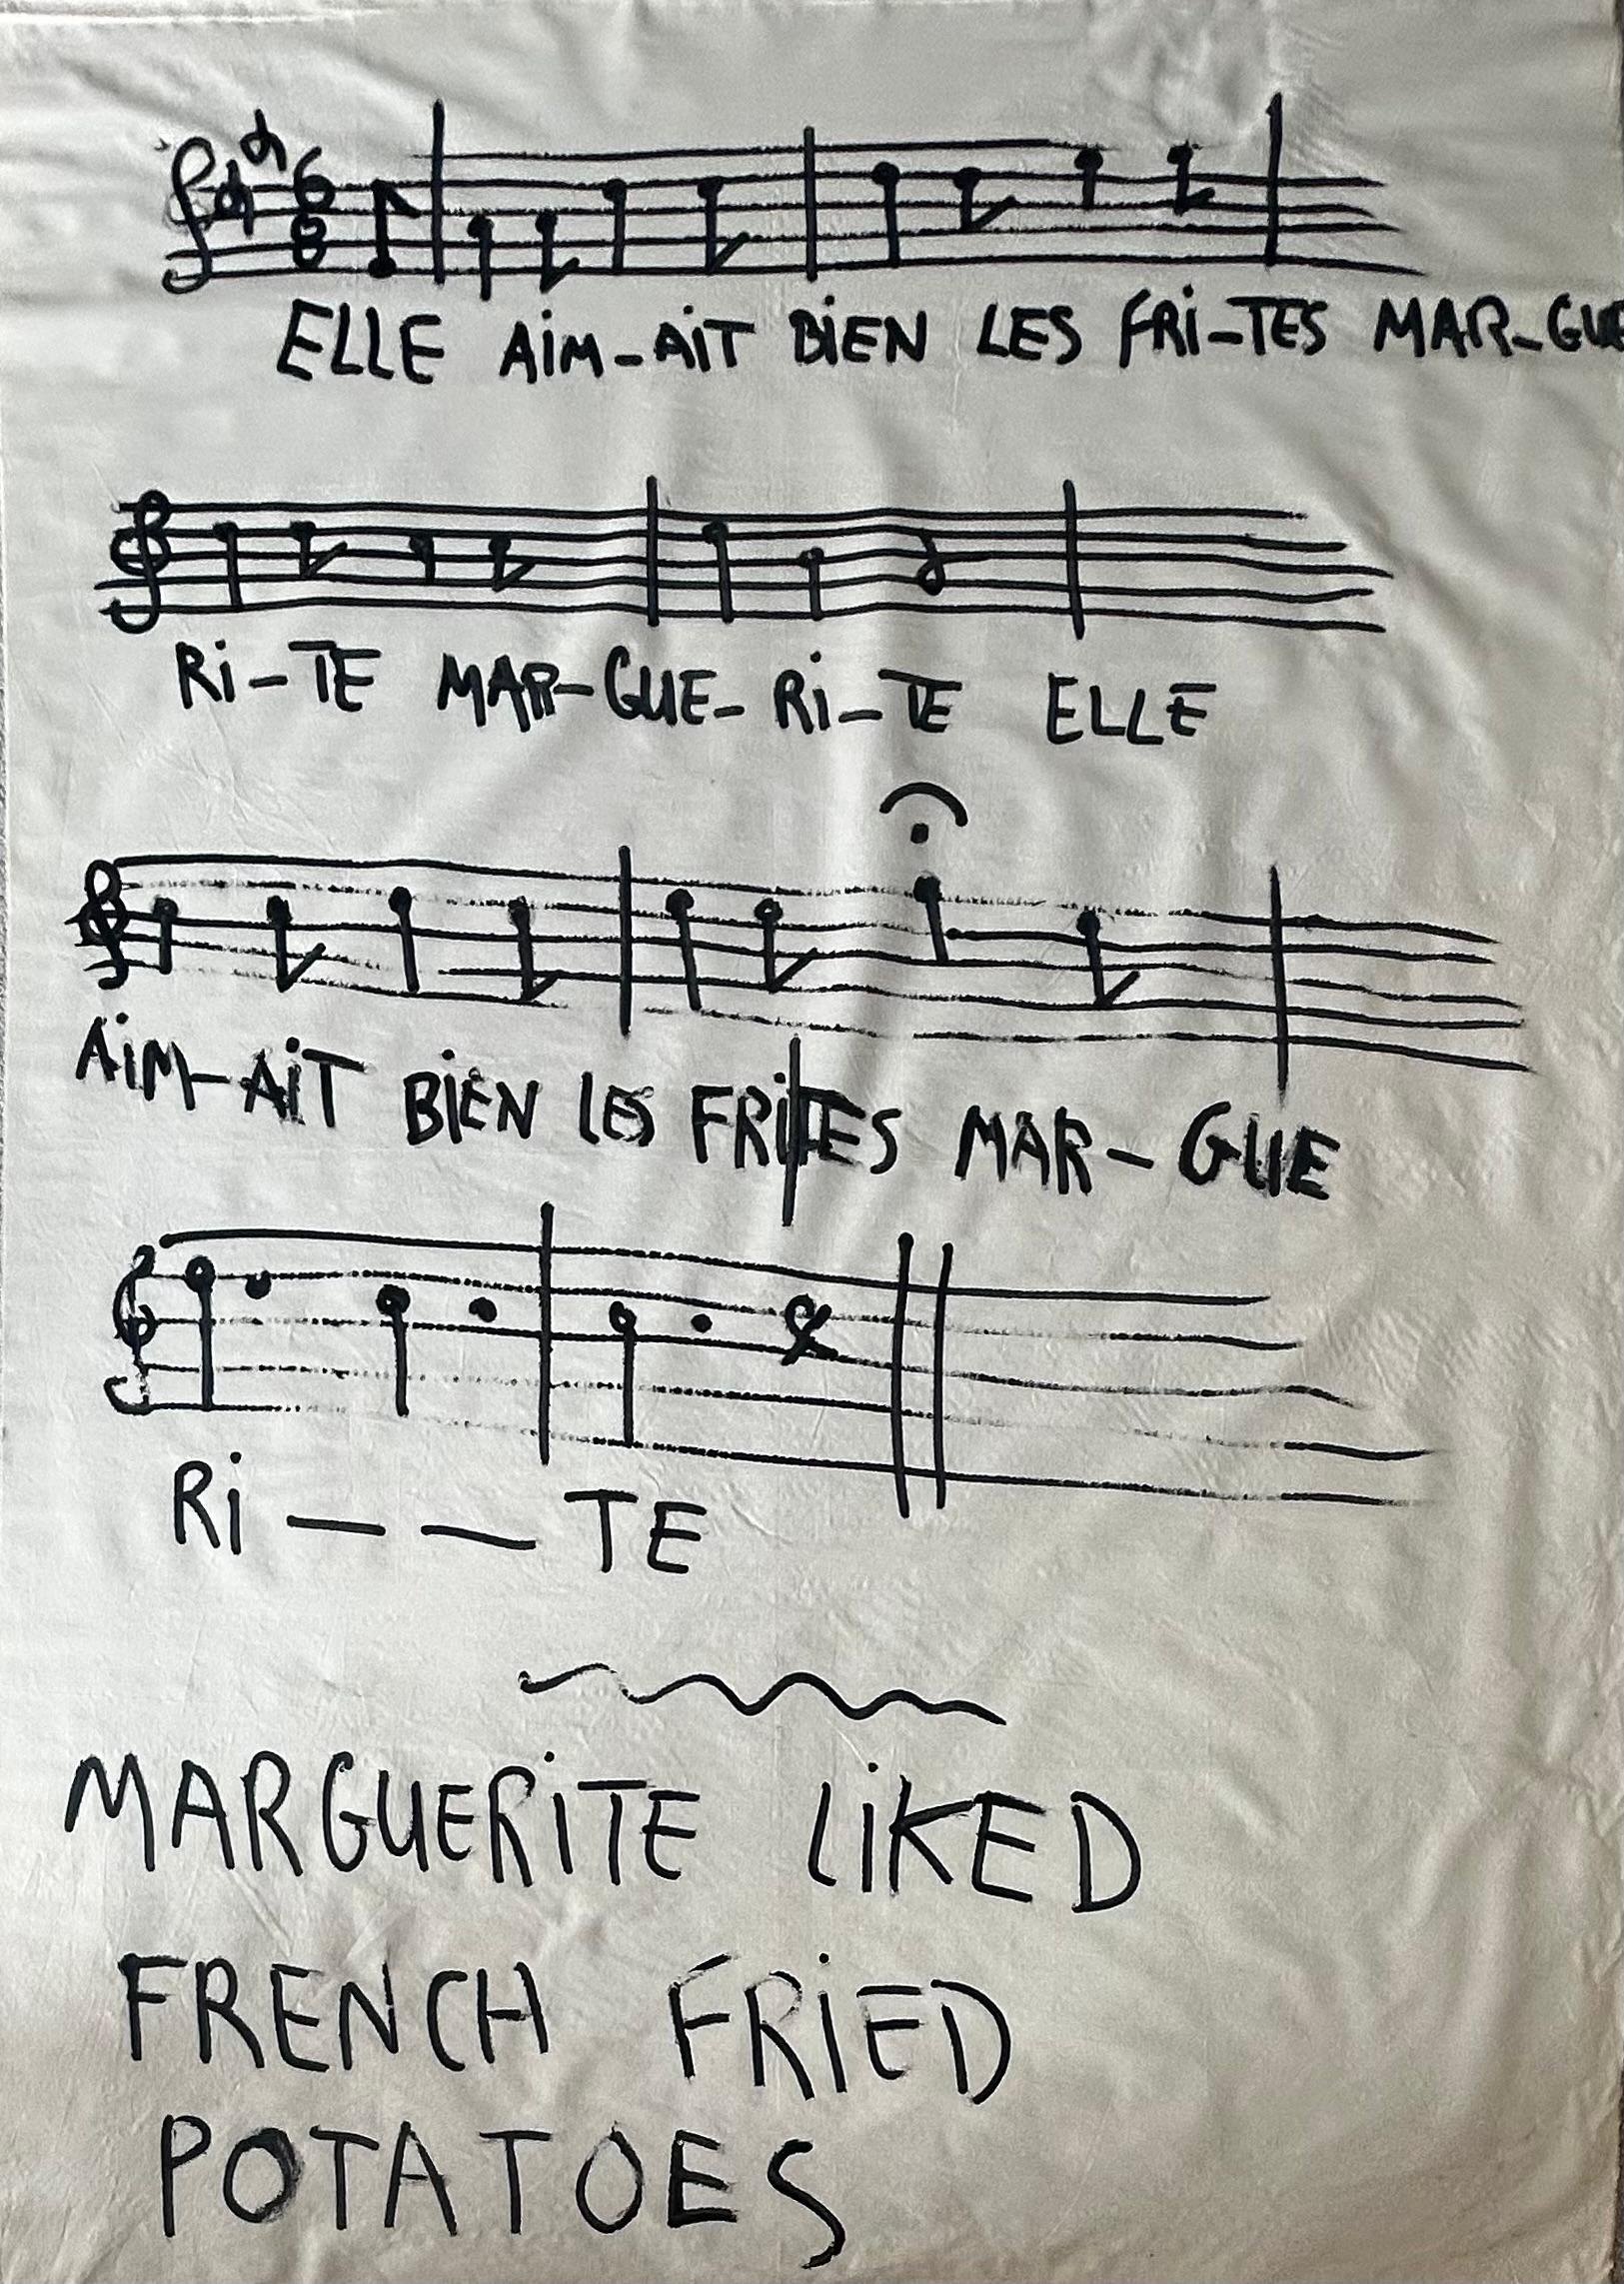 6
8
ELLE AIM-AIT BIEN LES FRI-TES MAR-GUE
RI-TE MAR-GUE-RI-TE ELLE
AIM-AIT BIEN LES FRITES MAR-GUE
RI--TE
MARGUERITE LIKED
FRENCH FRIED
POTATOES